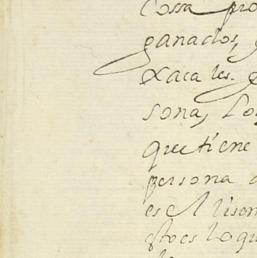 Cossa pro
ganados,
xaca les.
sona, Los
que tiene
persona
es el
esto es lo qu